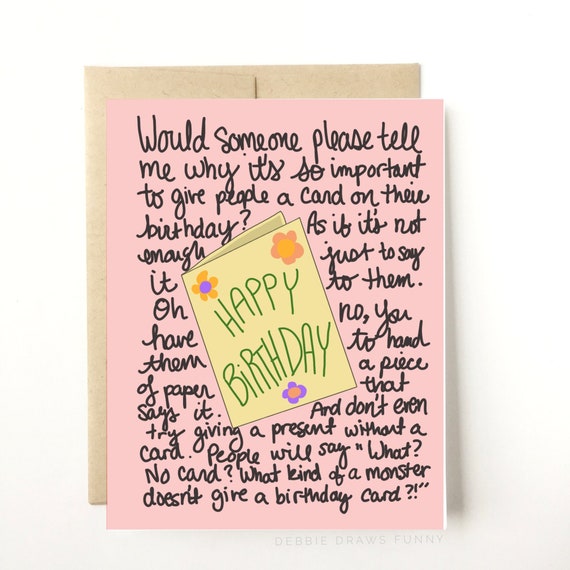 Would someone please tell
me why it's so important
to give people a card on their
birthday? As if it's not
enough just to say
it to them.
Oh no, you
have to hand
them a piece
of paper that
says it. And don't even
try giving a present without a
card. People will say "What?
No card? What kind of a monster
doesn't give a birthday card?!"
HAPPY
BIRTHDAY
DEBBIE DRAWS FUNNY